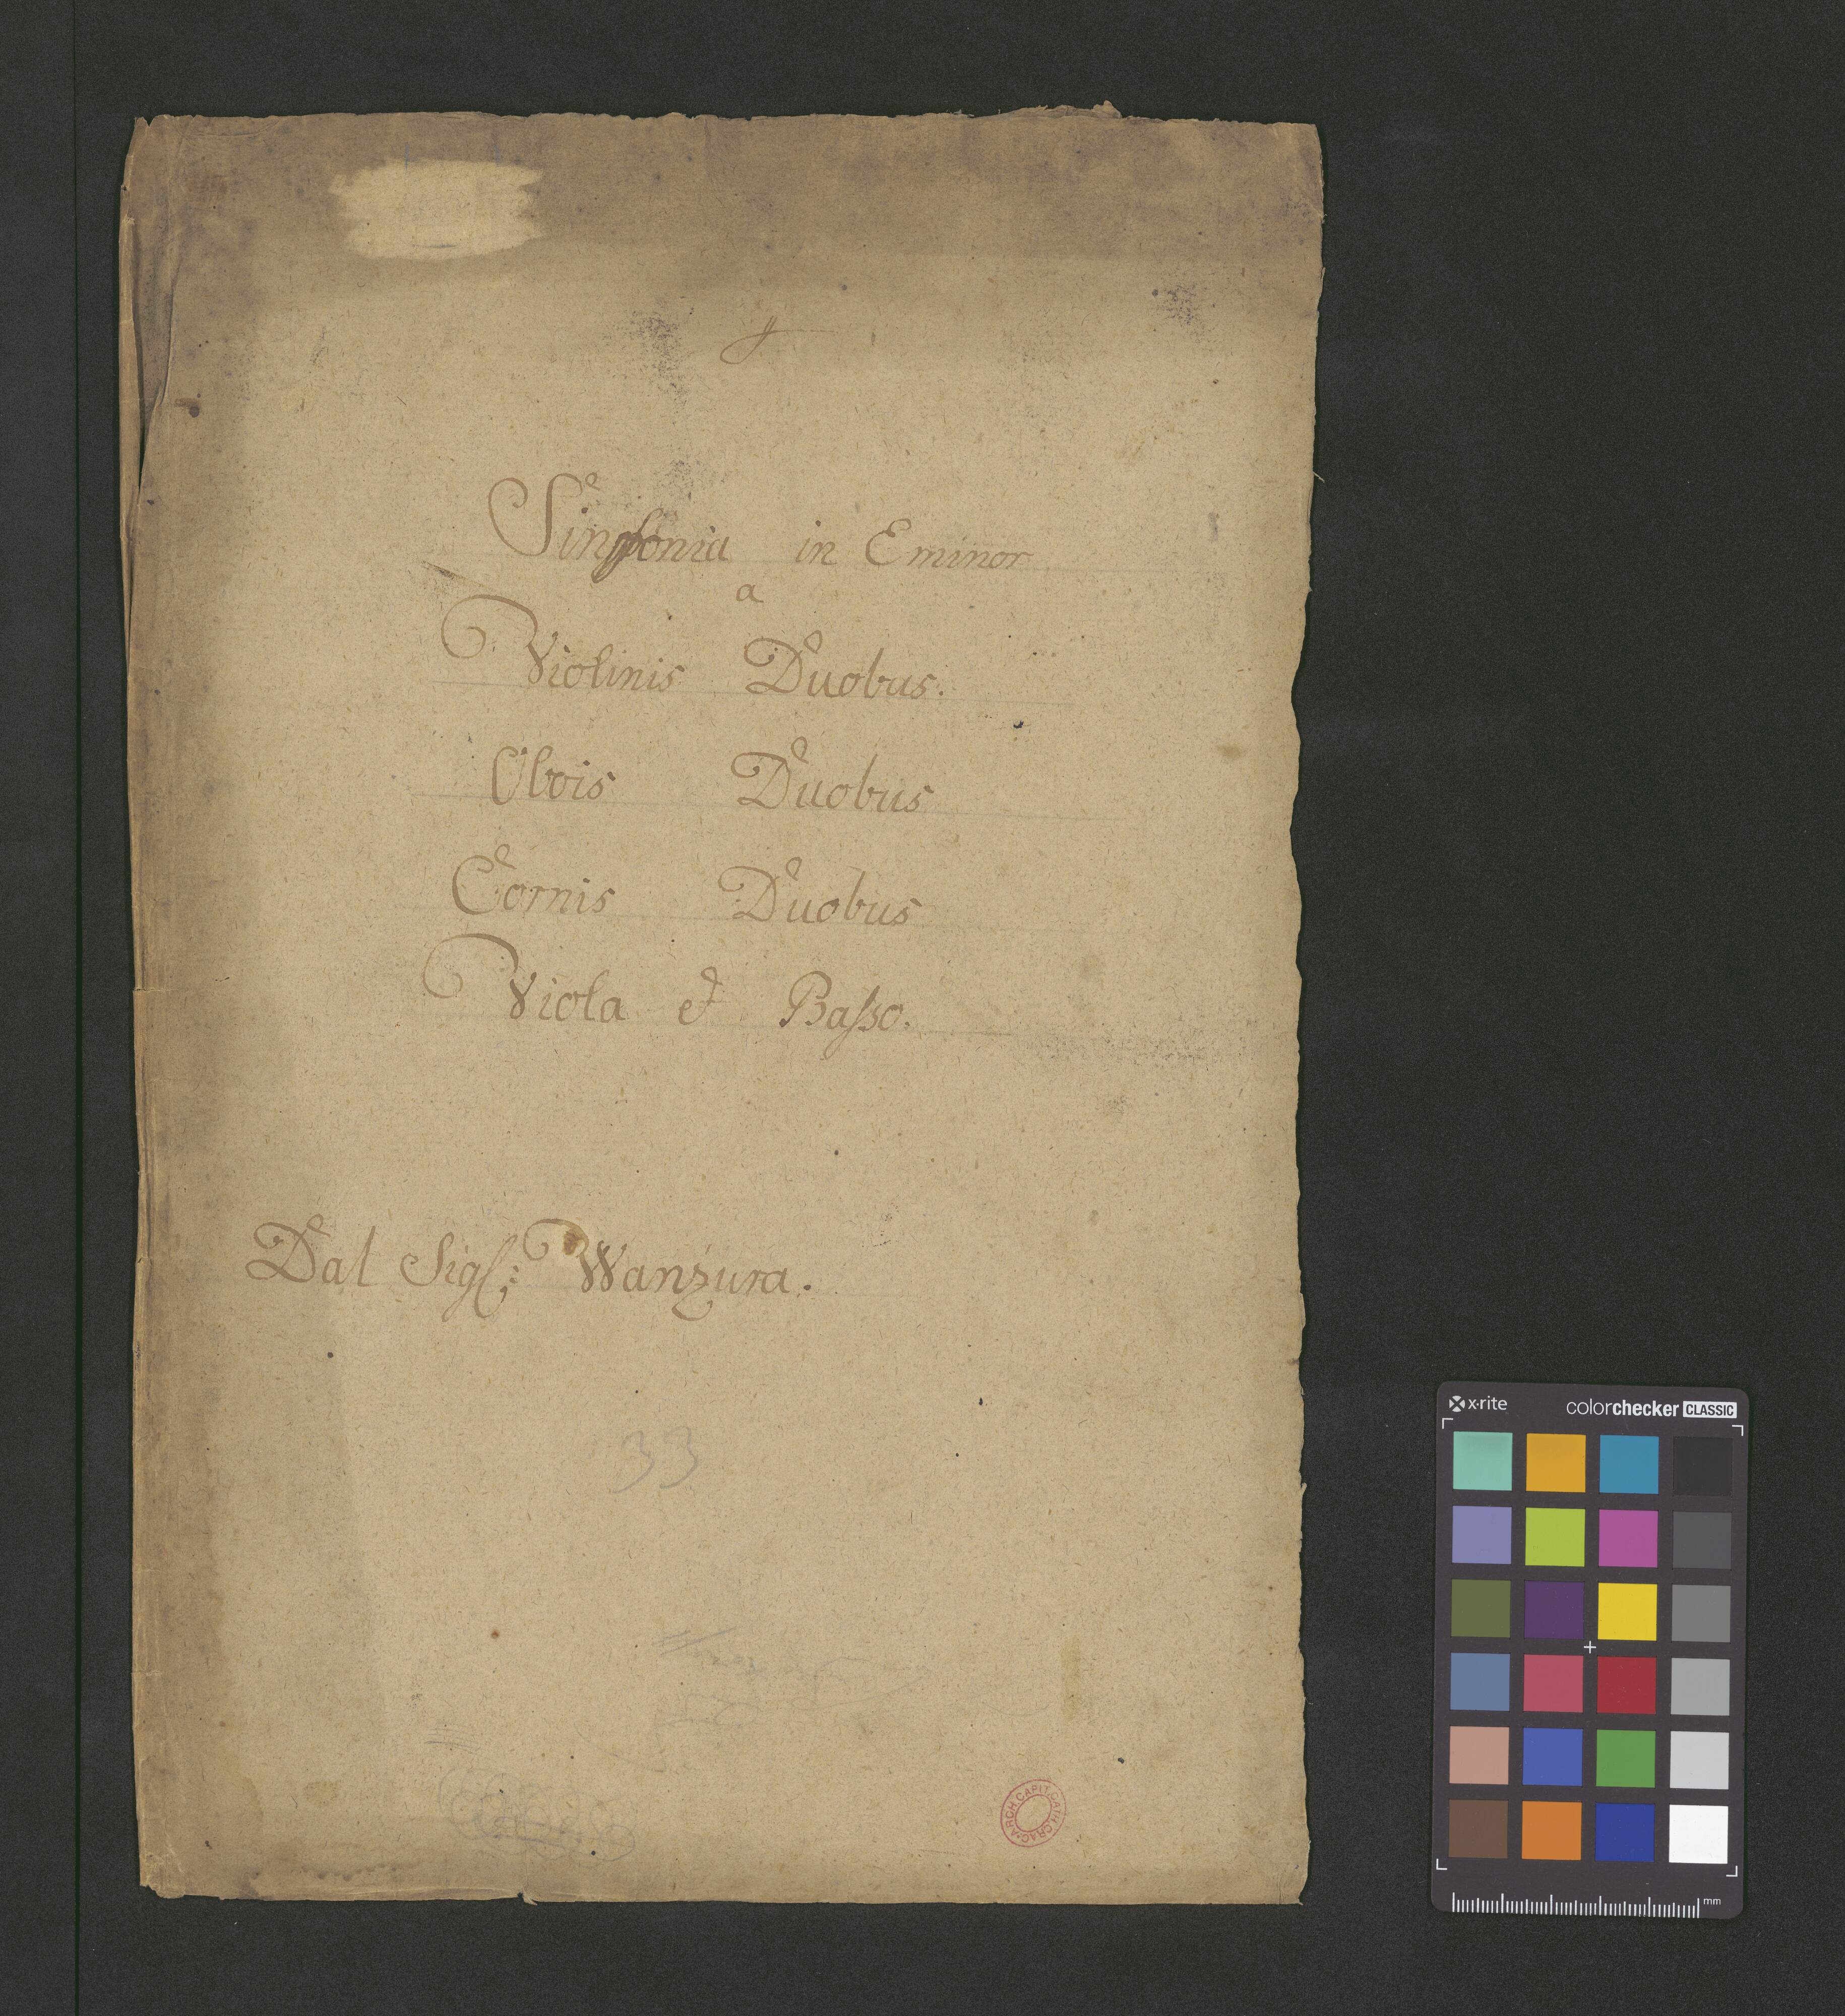 Sinfonia in E minor
a
Violinis Duobus.
Obois Duobus
Cornis Duobus
Viola et Baſso.
Dal Sig: Wanzura.
33
ARCH. CAPIT. CATH. CRAC.
x·rite colorchecker CLASSIC
mm